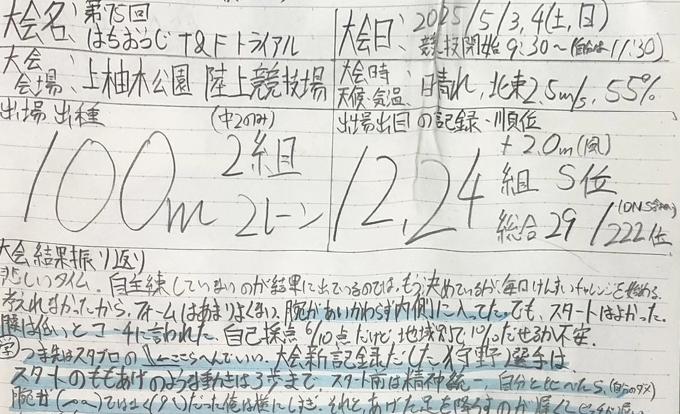 大会名: 第75回
はちおうじ T&F トライアル
大会日: 2025/5/3,4(土,日)
競技開始 9:30〜(自分は11:30)
大会会場: 上柚木公園 陸上競技場
大会時天候・気温: 晴れ, 北東2.5m/s, 55%
出場出種
(中2のみ)
100m
2組
2レーン
出場出目の記録・順位
+2.0m(風)
12.24
組 5位
総合29/222位
(DNS含め)
大会結果振り返り
悲しいタイム。自主練していないのが結果に出ているのでは。もう決めているが、毎日けんすいチャレンジを始める。
考えれなかったから。フォームはあまりよくない。腕があいかわらず内側に入ってた。でも、スタートはよかった。
腰は低いとコーチに言われた。自己採点6/10点だけど、地域別で10%だせるか不安。
つま先はスタブロの ここらへんでいい。大会新記録だした狩野選手は
スタートのももあげのような動きは3歩まで。スタート前は精神統一。自分と比べたら、(自分のダメ)
だった俺は横にしすぎ。それと、あげた足を降ろすのが